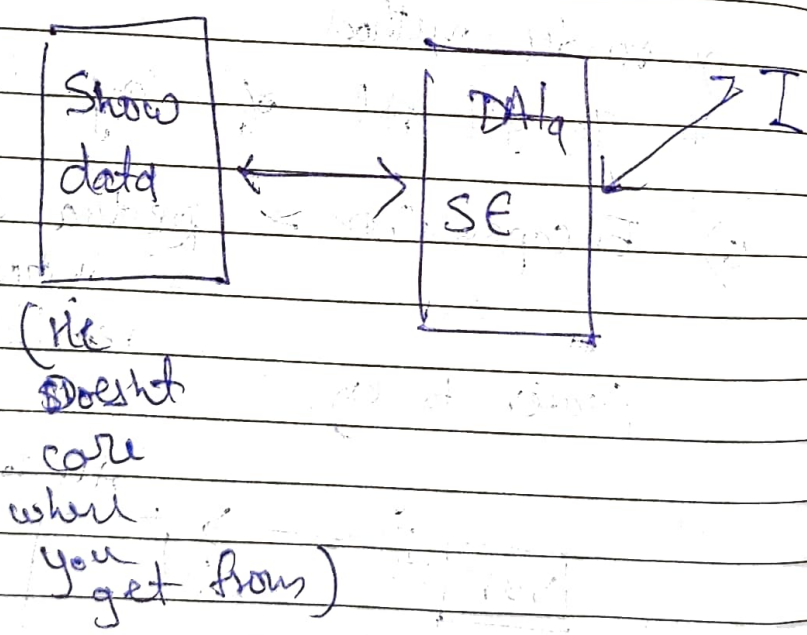 Show
data
DAta
SE
I
(He
Doesnt
care
where
you
get from)